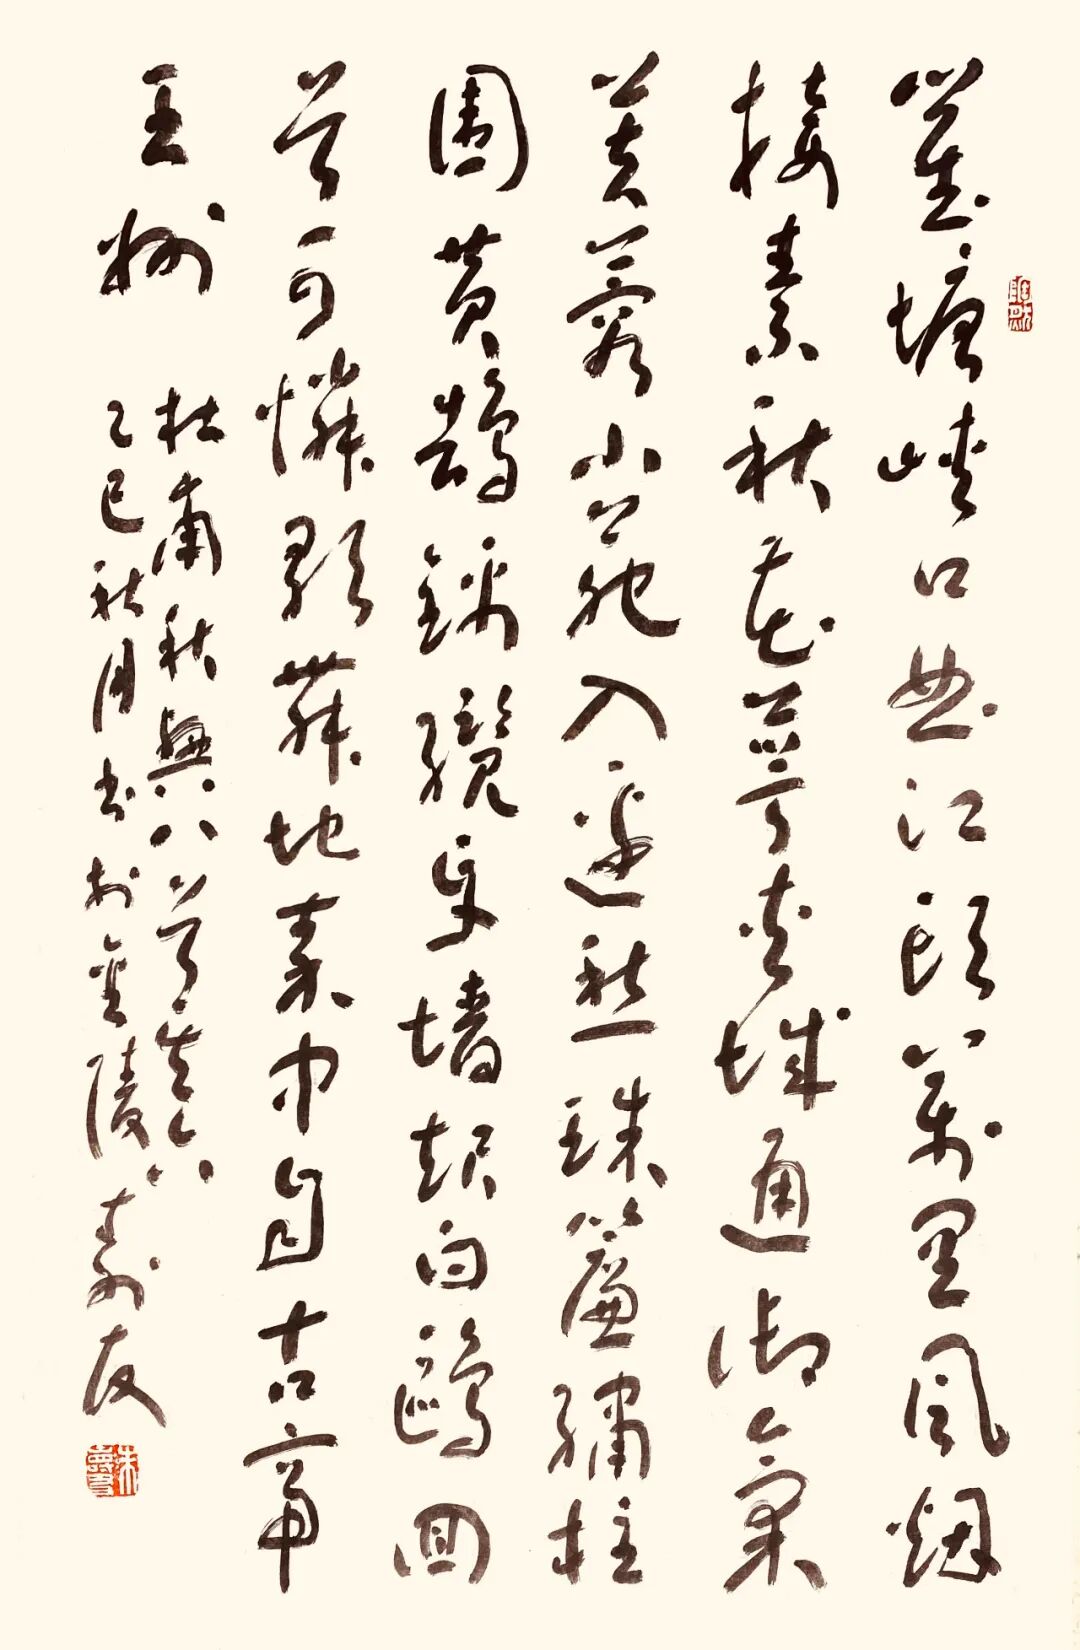 瞿塘峡口曲江頭萬里風烟
接素秋花萼夾城通御氣
芙蓉小苑入邊愁珠簾繡柱
圍黄鵠錦纜牙墙起白鷗回
首可憐歌舞地秦中自古帝
王州
杜甫秋興八首其六
乙巳秋月书於金陵壽友
朱壽友